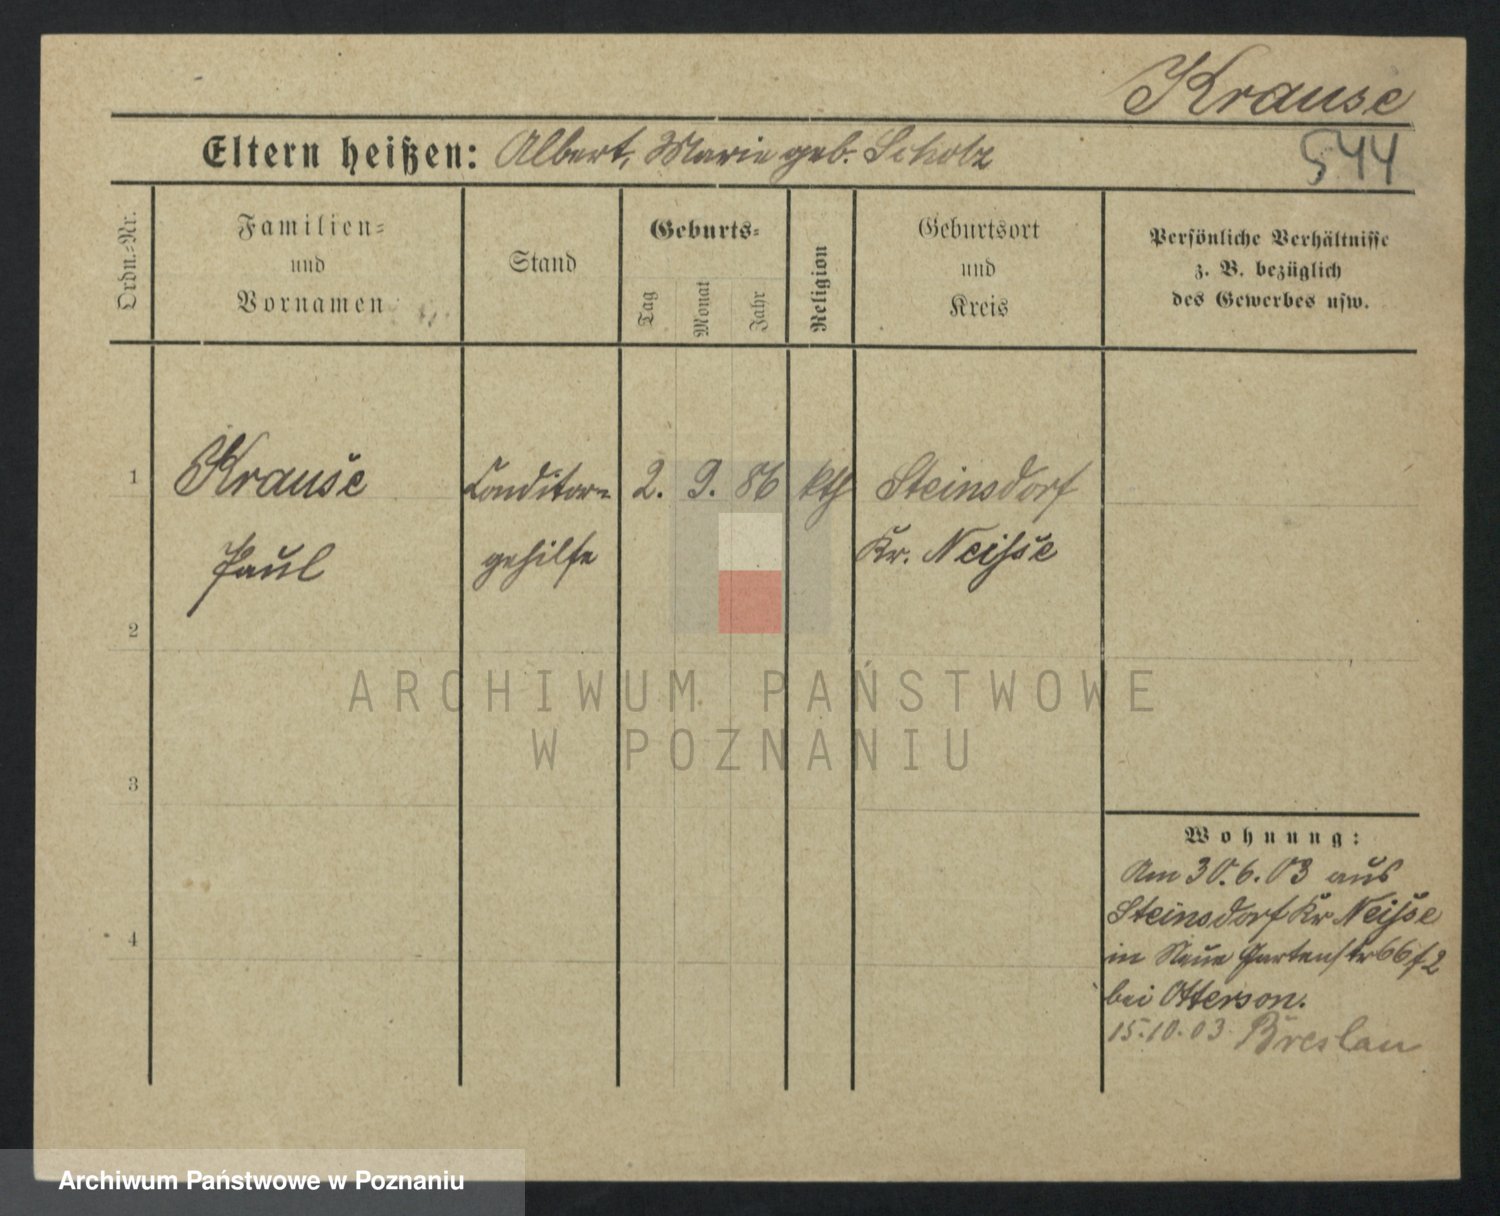 Krause
544
Eltern heißen: Albert, Marie geb. Scholz
Ordn.-Nr.
Familien-
und
Vornamen
Stand
Geburts-
Tag
Monat
Jahr
Religion
Geburtsort
und
Kreis
Persönliche Verhältnisse
z. B. bezüglich
des Gewerbes usw.
1 Krause Conditor- 2. 9. 86 kth Steinsdorf
Paul gehilfe Kr. Neisse
2
3
4
ARCHIWUM PAŃSTWOWE
W POZNANIU
Wohnung:
Am 30.6.03 aus
Steinsdorf Kr Neisse
in Neue Gartenstr 66
bei Otterson.
15.10.03 Breslau
Archiwum Państwowe w Poznaniu